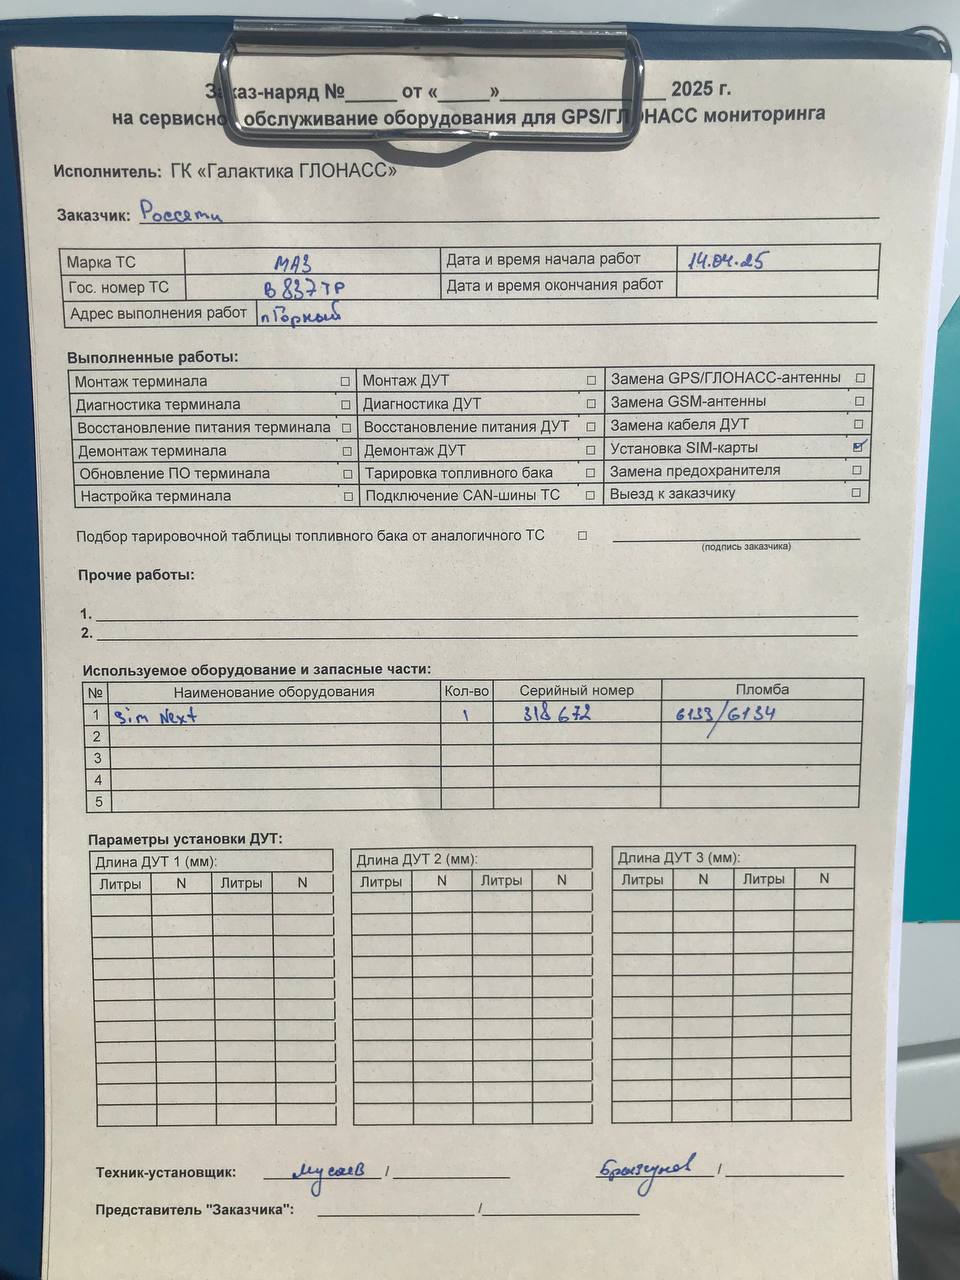 Заказ-наряд №_____ от «_____»________________ 2025 г.
на сервисное обслуживание оборудования для GPS/ГЛОНАСС мониторинга
Исполнитель: ГК «Галактика ГЛОНАСС»
Заказчик: Россети
Марка ТС МАЗ Дата и время начала работ 14.04.25
Гос. номер ТС В 837 ТР Дата и время окончания работ
Адрес выполнения работ п Горный
Выполненные работы:
Монтаж терминала ☐ Монтаж ДУТ ☐ Замена GPS/ГЛОНАСС-антенны ☐
Диагностика терминала ☐ Диагностика ДУТ ☐ Замена GSM-антенны ☐
Восстановление питания терминала ☐ Восстановление питания ДУТ ☐ Замена кабеля ДУТ ☐
Демонтаж терминала ☐ Демонтаж ДУТ ☐ Установка SIM-карты ☑
Обновление ПО терминала ☐ Тарировка топливного бака ☐ Замена предохранителя ☐
Настройка терминала ☐ Подключение CAN-шины ТС ☐ Выезд к заказчику ☐
Подбор тарировочной таблицы топливного бака от аналогичного ТС ☐
(подпись заказчика)
Прочие работы:
1.
2.
Используемое оборудование и запасные части:
№ Наименование оборудования Кол-во Серийный номер Пломба
1 Sim Next 1 318 672 6133/6134
2
3
4
5
Параметры установки ДУТ:
Длина ДУТ 1 (мм): Длина ДУТ 2 (мм): Длина ДУТ 3 (мм):
Литры N Литры N Литры N Литры N Литры N Литры N
Техник-установщик: Мусаев / Брызгунов /
Представитель "Заказчика": /